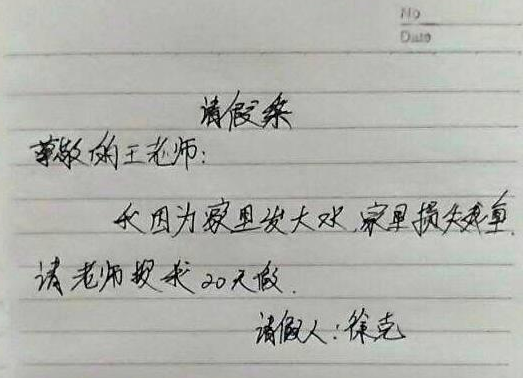 No
Date
请假条
尊敬的王老师:
我因为家里发大水,家里损失严重.
请老师授我20天假.
请假人:徐克